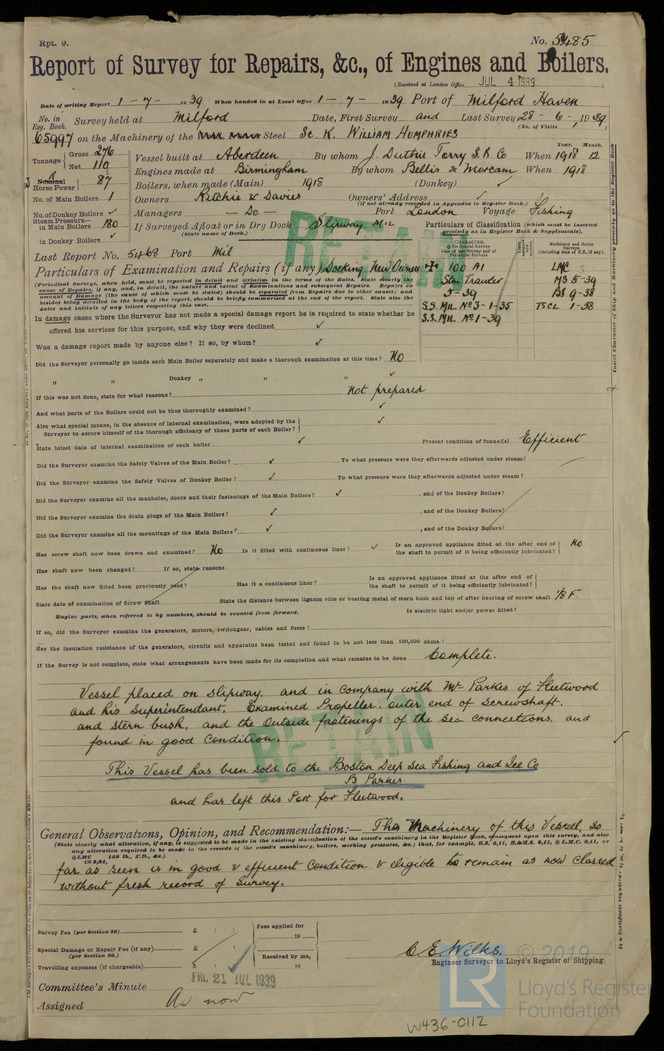 Rpt. 9.
No. 5485
Report of Survey for Repairs, &c., of Engines and Boilers.
(Received at London Office JUL 4 1939
Date of writing Report 1-7-1939 When handed in at Local Office 1-7-1939 Port of Milford Haven
No. in Reg. Book. Survey held at Milford Date, First Survey and Last Survey 28-6-1939
(No. of Visits
65997 on the Machinery of the Steel Sc K. WILLIAM HUMPHRIES
Tonnage Gross 276 Net 110
Vessel built at Aberdeen By whom J. Duthie Torry S.B. Co When 1918 12
Year. Month.
Engines made at Birmingham By whom Bellis & Morcam When 1918
Horse Power 87
Boilers, when made (Main) 1918 (Donkey)
No. of Main Boilers 1 Owners Ritchie & Davies Owners' Address
(if not already recorded in Appendix to Register Book.)
No. of Donkey Boilers ✓ Managers — Do — Port London Voyage Fishing
Steam Pressure— in Main Boilers 180 If Surveyed Afloat or in Dry Dock Slipway Mil
(State name of Dock.)
in Donkey Boilers ✓
Particulars of Classification (which must be inserted precisely as in Register Book & Supplements).
Last Report No. 5468 Port Mil
Particulars of Examination and Repairs (if any) Docking New Owners
+ 100 A1 LMC
Stm Trawler MS 5-39
5-39 BS 9-38
S.S. Mil. No 3-1-35 TS CL 1-38
S.S. Mil No 1-39
In damage cases where the Surveyor has not made a special damage report he is required to state whether he
offered his services for this purpose, and why they were declined ✓
Was a damage report made by anyone else? If so, by whom? ✓
Did the Surveyor personally go inside each Main Boiler separately and make a thorough examination at this time? No
" " Donkey " " " ✓
If this was not done, state for what reasons? Not prepared
And what parts of the Boilers could not be thus thoroughly examined? ✓
Also what special means, in the absence of internal examination, were adopted by the
Surveyor to assure himself of the thorough efficiency of these parts of each Boiler? ✓
State latest date of internal examination of each boiler ✓ Present condition of funnel(s) Efficient
Did the Surveyor examine the Safety Valves of the Main Boiler? ✓ To what pressure were they afterwards adjusted under steam?
Did the Surveyor examine the Safety Valves of Donkey Boiler? ✓ To what pressure were they afterwards adjusted under steam?
Did the Surveyor examine all the manholes, doors and their fastenings of the Main Boilers? ✓ , and of the Donkey Boilers?
Did the Surveyor examine the drain plugs of the Main Boilers? ✓ , and of the Donkey Boilers?
Did the Surveyor examine all the mountings of the Main Boilers? ✓ , and of the Donkey Boilers?
Has screw shaft now been drawn and examined? No Is it fitted with continuous liner? ✓ Is an approved appliance fitted at the after end of the shaft to permit of it being efficiently lubricated? No
Has shaft now been changed? If so, state reasons
Has the shaft now fitted been previously used? Has it a continuous liner? Is an approved appliance fitted at the after end of the shaft to permit of it being efficiently lubricated?
State date of examination of Screw Shaft State the distance between lignum vitæ or bearing metal of stern bush and top of after bearing of screw shaft 1/8 F.
Engine parts, when referred to by numbers, should be counted from forward. Is electric light and/or power fitted?
If so, did the Surveyor examine the generators, motors, switchgear, cables and fuses?
Has the insulation resistance of the generators, circuits and apparatus been tested and found to be not less than 100,000 ohms?
If the Survey is not complete, state what arrangements have been made for its completion and what remains to be done Complete.
Vessel placed on slipway, and in company with Mr Parkes of Fleetwood
and his Superintendant, Examined Propeller, outer end of screwshaft,
and stern bush, and the outside fastenings of the sea connections, and
found in good condition.
This Vessel has been sold to the Boston Deep Sea Fishing and Ice Co
B. Parkes
and has left this Port for Fleetwood.
RETAIN
RETAIN
General Observations, Opinion, and Recommendation:— The Machinery of this Vessel, so
far as seen is in good & efficient condition & eligible to remain as now classed
without fresh record of Survey.
Survey Fee (per Section 29) £ : : Fees applied for
19
Special Damage or Repair Fee (if any) £ : :
(per Section 29.) Received by me,
Travelling expenses (if chargeable) £ : : 19
C E Wilks.
Engineer Surveyor to Lloyd's Register of Shipping.
FRI. 21 JUL 1939
Committee's Minute
Assigned As now
© 2019
LR
Lloyd's Register
Foundation
W436-0112